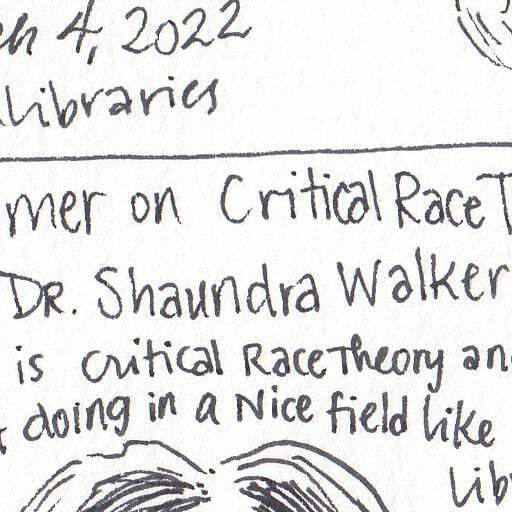 ch 4, 2022
Libraries
mer on Critical Race T
Dr. Shaundra Walker
is critical Race Theory an
t doing in a Nice field like
Lib